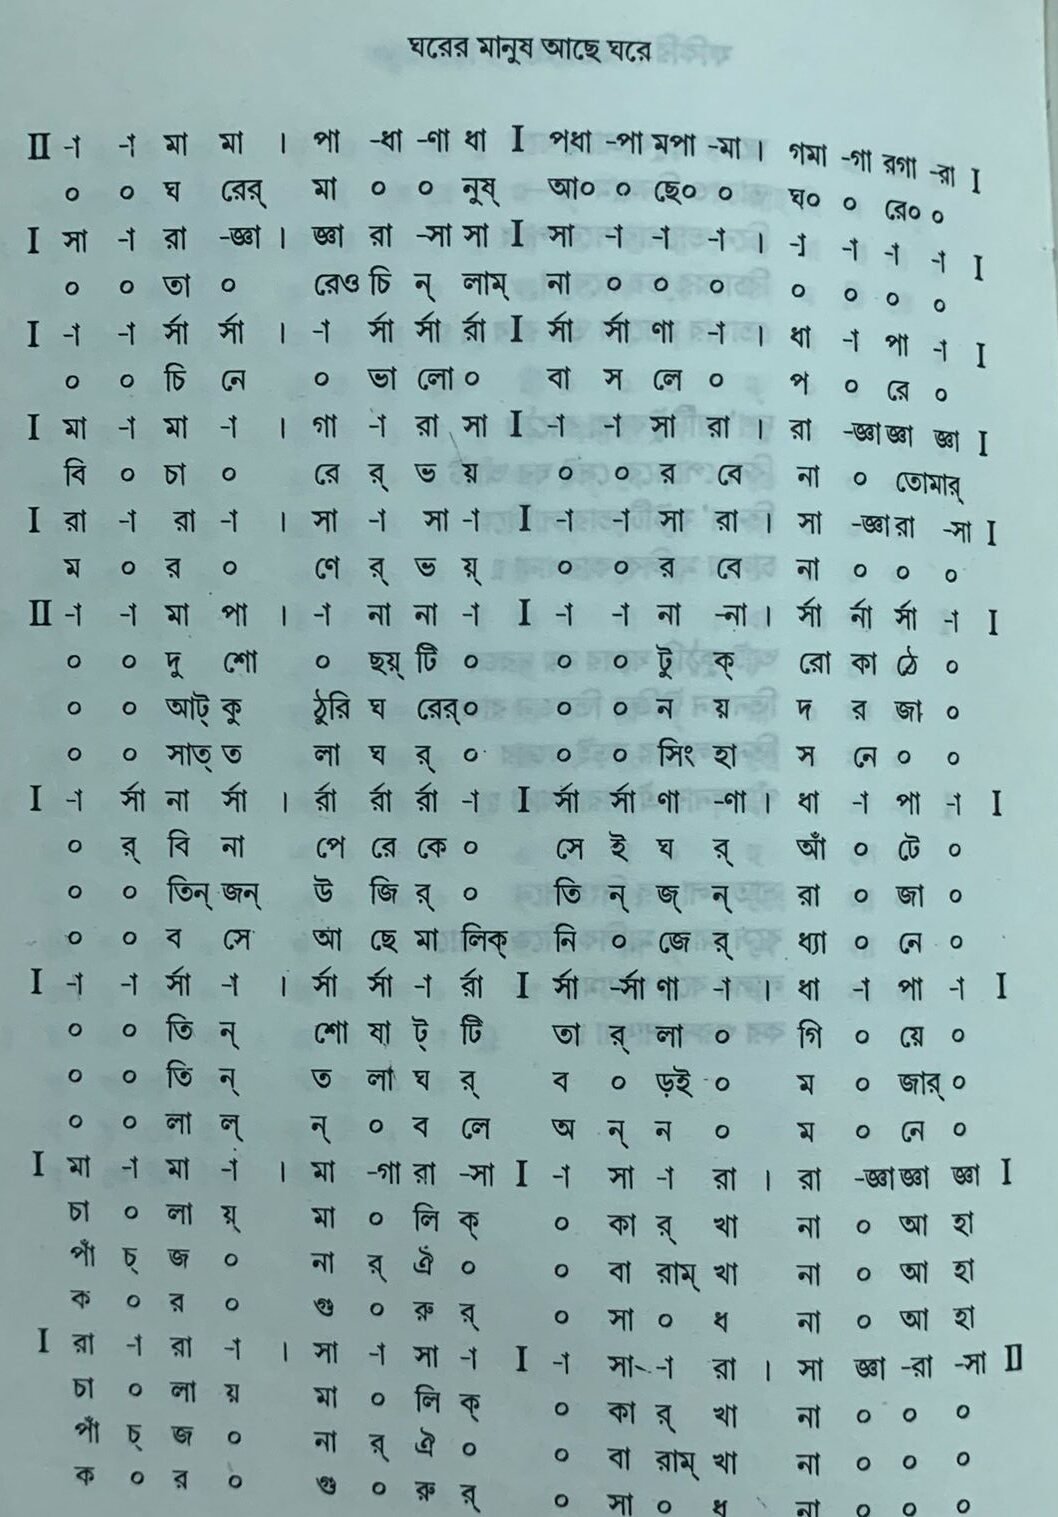 ঘরের মানুষ আছে ঘরে
II -া -া মা মা । পা -ধা -ণা ধা I পধা -পা মপা -মা । গমা -গা রগা -রা I
০ ০ ঘ রের্ মা ০ ০ নুষ্ আ০ ০ ছে০ ০ ঘ০ ০ রে০ ০
I সা -া রা -জ্ঞা । জ্ঞা রা -সা সা I সা -া -া -া । -া -া -া -া I
০ ০ তা ০ রেও চি ন্ লাম্ না ০ ০ ০ ০ ০ ০ ০
I -া -া র্সা র্সা । -া র্সা র্সা র্রা I র্সা র্সা ণা -া । ধা -া পা -া I
০ ০ চি নে ০ ভা লো ০ বা স লে ০ প ০ রে ০
I মা -া মা -া । গা -া রা সা I -া -া সা রা । রা -জ্ঞা জ্ঞা জ্ঞা I
বি ০ চা ০ রে র্ ভ য় ০ ০ র বে না ০ তোমার্
I রা -া রা -া । সা -া সা -া I -া -া সা রা । সা -জ্ঞা রা -সা I
ম ০ র ০ ণে র্ ভ য়্ ০ ০ র বে না ০ ০ ০
II -া -া মা পা । -া না না -া I -া -া না -না । র্সা র্না র্সা -া I
০ ০ দু শো ০ ছয়্ টি ০ ০ ০ টু ক্ রো কা ঠে ০
০ ০ আট্ কু ঠুরি ঘ রের্ ০ ০ ০ ন য় দ র জা ০
০ ০ সাত্ ত লা ঘ র্ ০ ০ ০ সিং হা স নে ০ ০
I -া র্সা না র্সা । র্রা র্রা র্রা -া I র্সা র্সা ণা -ণা । ধা -া পা -া I
০ র্ বি না পে রে কে ০ সে ই ঘ র্ আঁ ০ টে ০
০ ০ তিন্ জন্ উ জি র্ ০ তি ন্ জ্ ন্ রা ০ জা ০
০ ০ ব সে আ ছে মা লিক্ নি ০ জে র্ ধ্যা ০ নে ০
I -া -া র্সা -া । র্সা র্সা -া র্রা I র্সা -র্সা ণা -া । ধা -া পা -া I
০ ০ তি ন্ শো ষা ট্ টি তা র্ লা ০ গি ০ য়ে ০
০ ০ তি ন্ ত লা ঘ র্ ব ০ ড়ই ০ ম ০ জার্ ০
০ ০ লা ল্ ন্ ০ ব লে অ ন্ ন ০ ম ০ নে ০
I মা -া মা -া । মা -গা রা -সা I -া সা -া রা । রা -জ্ঞা জ্ঞা জ্ঞা I
চা ০ লা য়্ মা ০ লি ক্ ০ কা র্ খা না ০ আ হা
পাঁ চ্ জ ০ না র্ ঐ ০ ০ বা রাম্ খা না ০ আ হা
ক ০ র ০ গু ০ রু র্ ০ সা ০ ধ না ০ আ হা
I রা -া রা -া । সা -া সা -া I -া সা -া রা । সা জ্ঞা -রা -সা II
চা ০ লা য় মা ০ লি ক্ ০ কা র্ খা না ০ ০ ০
পাঁ চ্ জ ০ না র্ ঐ ০ ০ বা রাম্ খা না ০ ০ ০
ক ০ র ০ গু ০ রু র্ ০ সা ০ ধ না ০ ০ ০